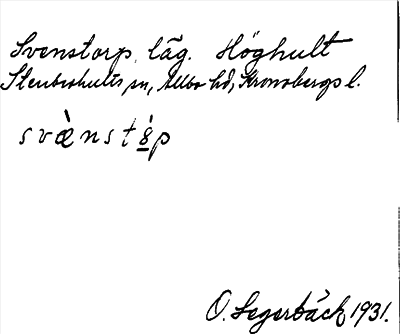 Svenstorp, låg. Höghult
Stenbrohults sn, Allbo hd, Kronobergs l.
svæ̀nstṣ̀p
O. Segerbäck 1931.